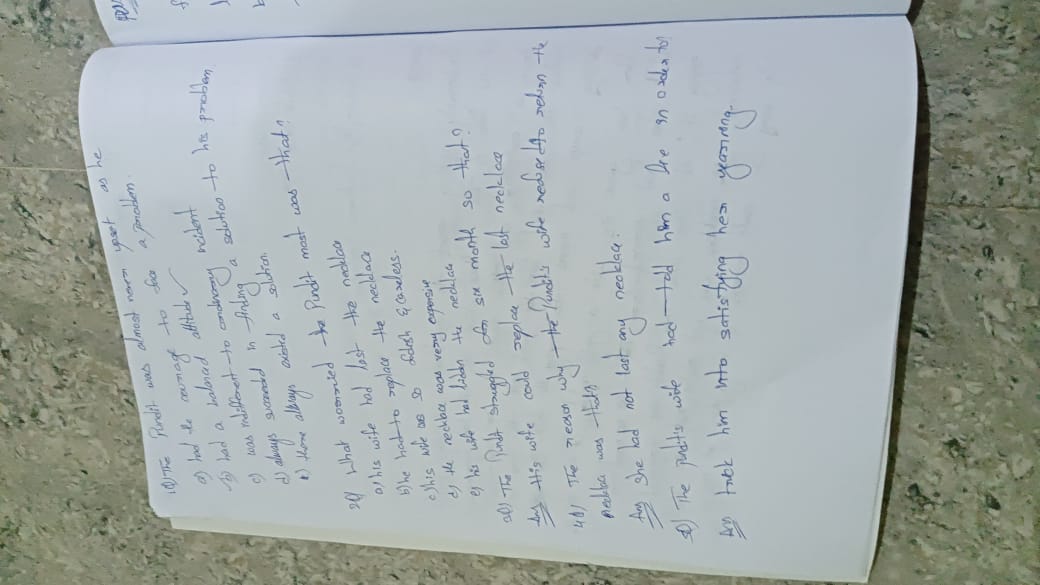 1Q) The Pundit was almost never upset as he
a) had the courage to face a problem.
b) had a balanced attitude ✓
c) was indifferent to condinary incident
d) always succeeded in finding a solution to his problem
e) there always existed a solution.
2Q) What worried the Pundit most was that?
a) his wife had lost the necklace
b) he had to replace the necklace
c) his wife was so foolish & careless.
d) the necklace was very expensive
e) his wife had hidden the necklace
3Q) The Pundit struggled for six month so that?
Ans his wife could replace the lost necklace
4Q) The reason why the Pundit's wife refused to return the
necklace was that?
Ans She had not lost any necklace.
5Q) The pundits wife had told him a lie in order to?
Ans trick him into satisfying her yearning.